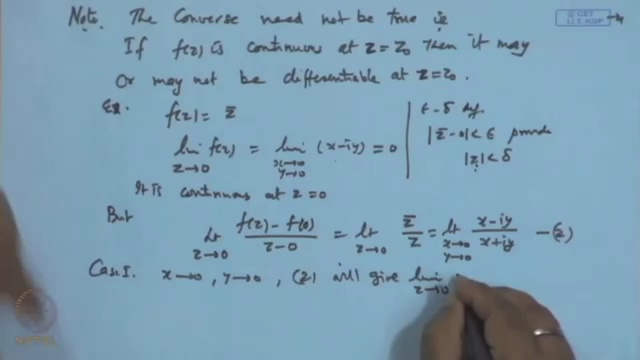 Note. The Converse need not be true ie
© CET
I.I.T. KGP
If f(z) is continuous at z=z₀ then it may
Or may not be differentiable at z=z₀.
Ex. f(z) = z̄
ε-δ def.
lim_{z→0} f(z) = lim_{x→0, y→0} (x-iy) = 0
|z̄-0|<ε provide
|z|<δ
It is continuous at z=0
But lt_{z→0} (f(z)-f(0))/(z-0) = lt_{z→0} z̄/z = lt_{x→0, y→0} (x-iy)/(x+iy) —(2)
Case I. x→0, y→0, (2) will give lim_{z→0}
NPTEL